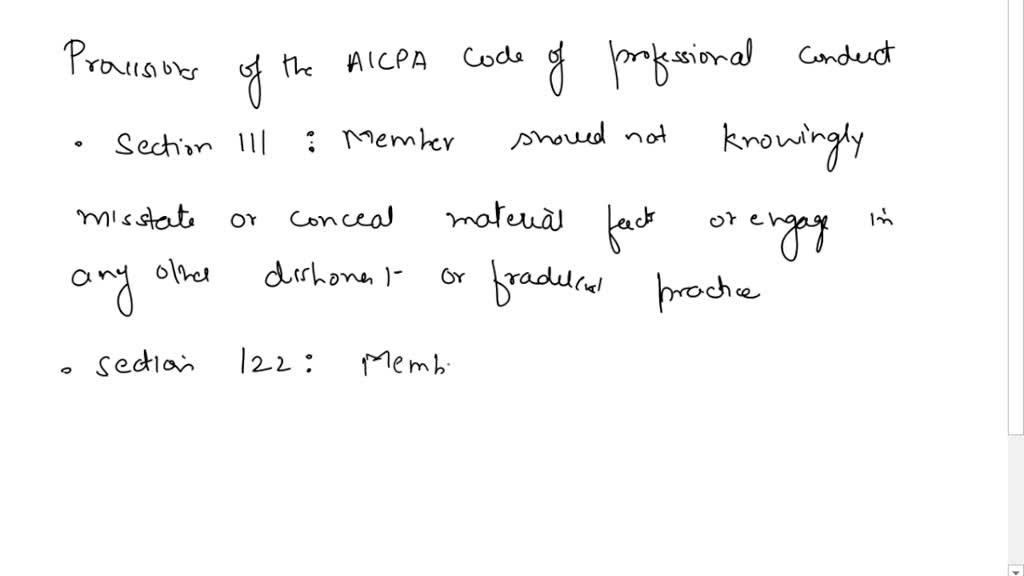 Provisions of the AICPA Code of professional conduct
• Section 111 : Member should not knowingly
misstate or conceal material fact or engage in
any other dishonest or fradulent practice
• section 122 : Memb